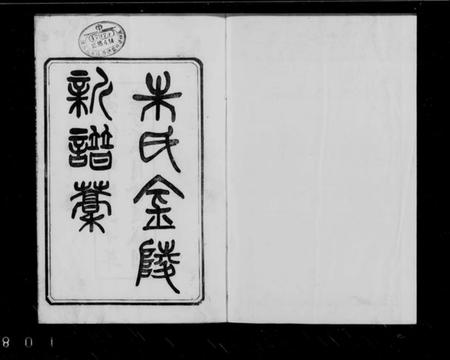 朱氏金陵
新譜藳
801